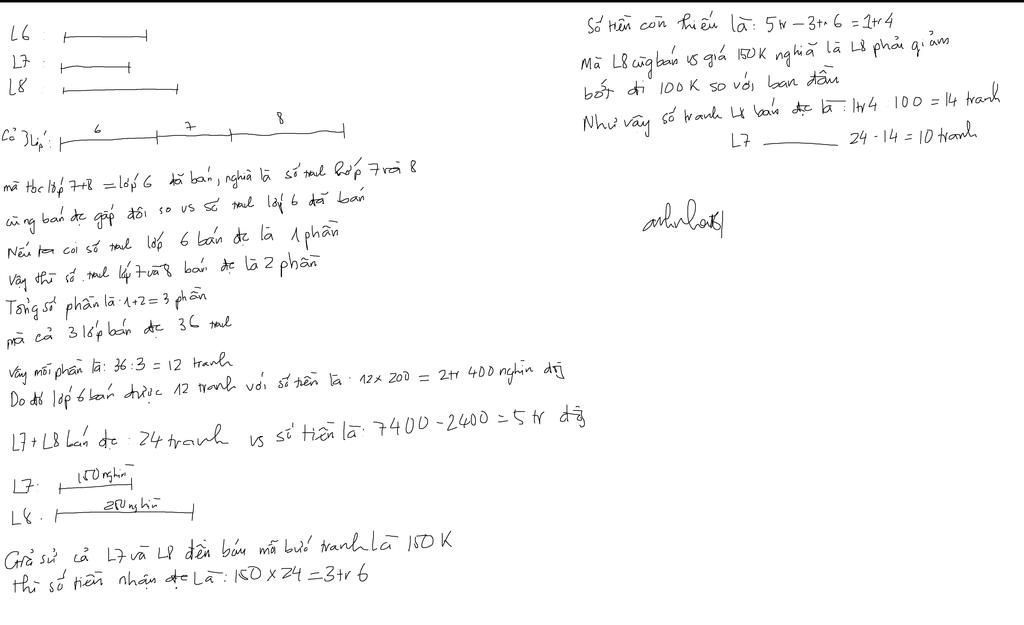 L6 :
L7 :
L8 :
6 7 8
Cả 3 Lớp:
mà tbc lớp 7+8 = lớp 6 đã bán, nghĩa là số tranh lớp 7 và 8
cũng bán đc gấp đôi so vs số tranh lớp 6 đã bán
Nếu ta coi số tranh lớp 6 bán đc là 1 phần
Vậy thì số tranh lớp 7 và 8 bán đc là 2 phần
Tổng số phần là: 1+2=3 phần
mà cả 3 lớp bán đc 36 tranh
Vậy mỗi phần là: 36:3 = 12 tranh
Do đó lớp 6 bán được 12 tranh với số tiền là: 12 x 200 = 2tr 400 nghìn đồng
L7 + L8 bán đc: 24 tranh vs số tiền là: 7400 - 2400 = 5 tr đồng
L7: 150 nghìn
L8: 250 nghìn
Giả sử cả L7 và L8 đều bán mỗi bức tranh Là 150K
thì số tiền nhận đc Là: 150 x 24 = 3tr 6
Số tiền còn thiếu là: 5tr - 3tr 6 = 1tr4
Mà L8 cũng bán vs giá 150K nghĩa là L8 phải giảm
bớt đi 100K so với ban đầu
Như vậy số tranh L8 bán đc là: 1tr4 : 100 = 14 tranh
L7 ——— 24 - 14 = 10 tranh